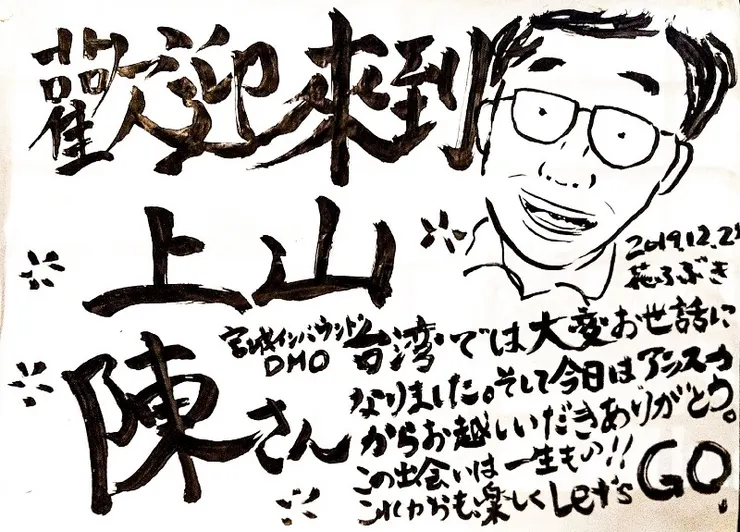 歡迎來到
上山
2019.12.2
花ふぶき
宮城インバウンド
DMO
陳さん
台湾では大変お世話に
なりました。そして今日は
からお越しいただきありがとう。
この出会いは一生もい!!
これからも楽しくLet's GO